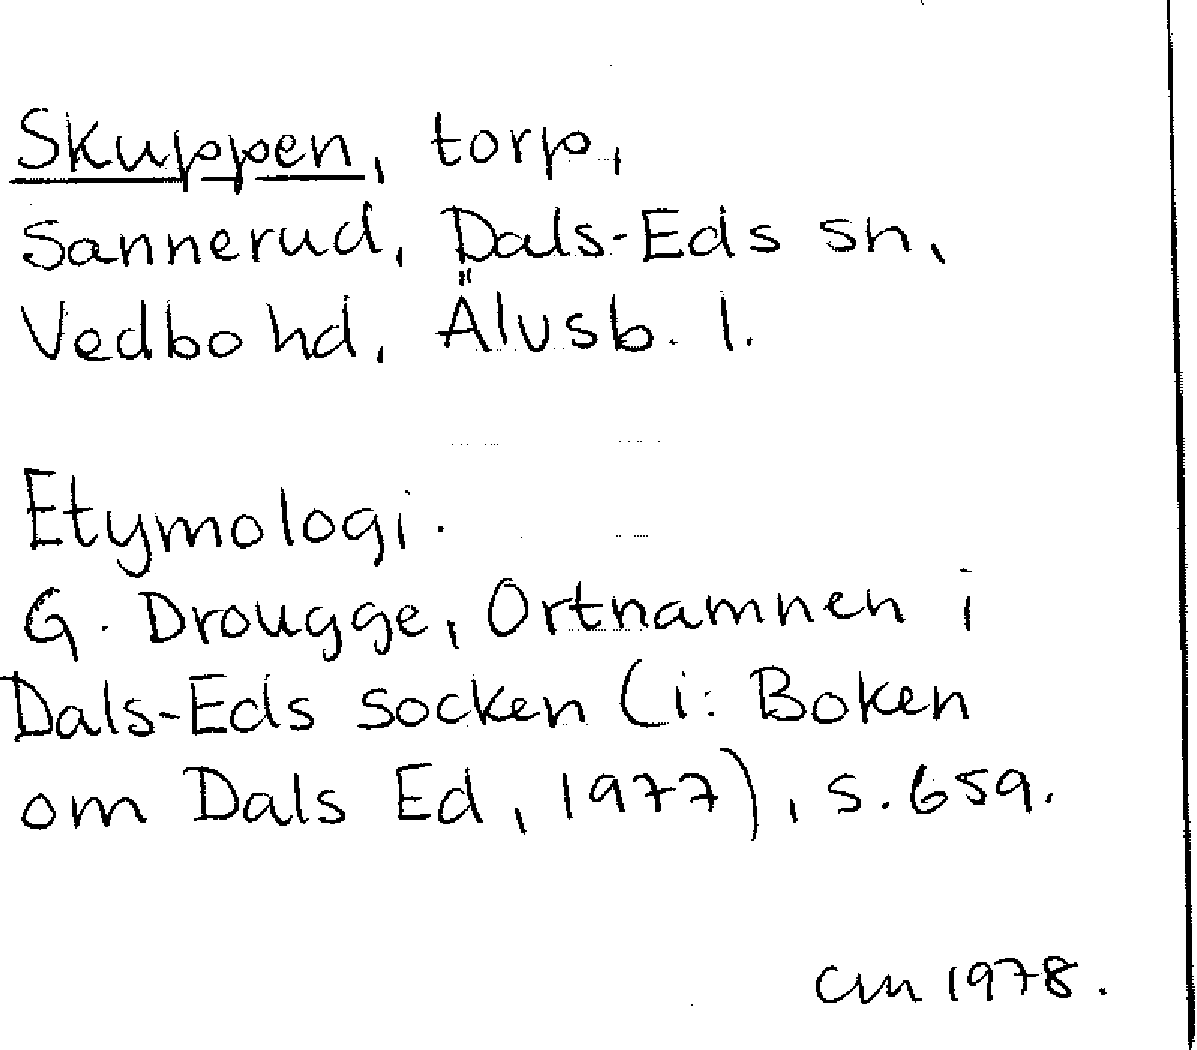 Skuppen, torp,
Sannerud, Dals-Eds sn,
Vedbo hd, Älvsb. l.
Etymologi.
G. Drougge, Ortnamnen i
Dals-Eds socken (i: Boken
om Dals Ed, 1977), s. 659.
CM 1978.